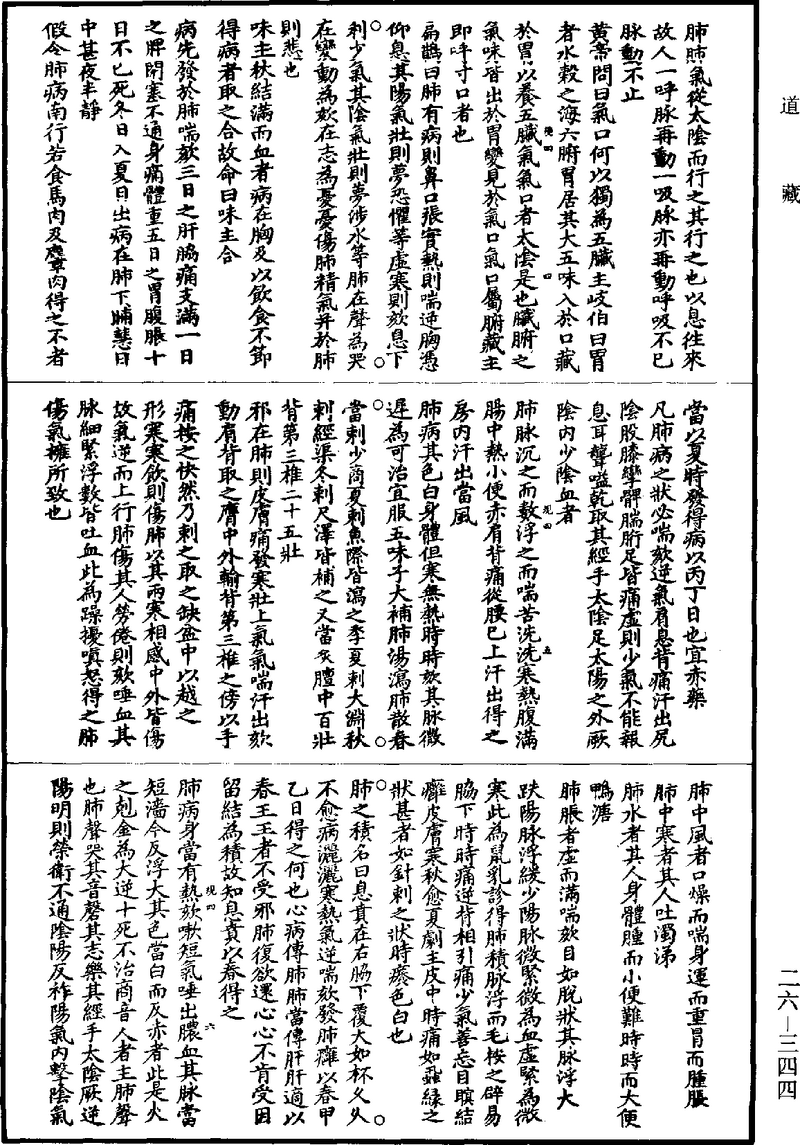 道藏
肺肺氣從太陰而行之其行之也以息往來
故人一呼脉再動一吸脉亦再動呼吸不已
脉動不止
黃帝問曰氣口何以獨為五臟主岐伯曰胃
者水穀之海六腑胃居其大五味入於口藏
於胃以養五臟氣氣口者太陰是也臟腑之
氣味皆出於胃變見於氣口氣口屬腑藏主
即呼寸口者也
扁鵲曰肺有病則鼻口張實熱則喘逆胸憑
仰息其陽氣壯則夢恐懼等虛寒則欬息下
利少氣其陰氣壯則夢涉水等肺在聲為哭
○
在變動為欬在志為憂憂傷肺精氣并於肺
則悲也
味主秋結滿而血者病在胸及以飲食不節
得病者取之合故命曰味主合
病先發於肺喘欬三日之肝脇痛支滿一日
之脾閉塞不通身痛體重五日之胃腹脹十
日不已死冬日入夏日出病在肺下晡慧日
中甚夜半靜
假令肺病南行若食馬肉及麞肉得之不者
當以夏時發得病以丙丁日也宜赤藥
凡肺病之狀必喘欬逆氣肩息背痛汗出尻
陰股膝攣髀腨胻足皆痛虛則少氣不能報
息耳聾嗌乾取其經手太陰足太陽之外厥
陰内少陰血者
肺脉沉之而數浮之而喘苦洗洗寒熱腹滿
腸中熱小便赤肩背痛從腰已上汗出得之
房内汗出當風
肺病其色白身體但寒無熱時時欬其脉微
遲為可治宜服五味子大補肺湯瀉肺散春
○
當刺少商夏刺魚際皆瀉之季夏刺大淵秋
刺經渠冬刺尺澤皆補之又當炙膻中百壯
背第三椎二十五壯
邪在肺則皮膚痛發寒壯上氣氣喘汗出欬
動肩背取之膺中外輸背第三椎之傍以手
痛按之快然乃刺之取之缺盆中以越之
形寒寒飲則傷肺以其兩寒相感中外皆傷
故氣逆而上行肺傷其人勞倦則欬唾血其
脉細緊浮數皆吐血此為躁擾嗔怒得之肺
傷氣擁所致也
肺中風者口燥而喘身運而重冒而腫脹
肺中寒者其人吐濁涕
肺水者其人身體腫而小便難時時而大便
鴨溏
肺脹者虛而滿喘欬目如脫狀其脉浮大
趺陽脉浮緩少陽脉微緊微為血虛緊為微
寒此為鼠乳診得肺積脉浮而毛按之辟易
脇下時時痛逆背相引痛少氣善忘目瞑結
癰皮膚寒秋愈夏劇主皮中時痛如蝨緣之
狀甚者如針刺之狀時癢色白也
肺之積名曰息賁在右脇下覆大如杯久久
○
不愈病灑灑寒熱氣逆喘欬發肺癰以春甲
乙日得之何也心病傳肺肺當傳肝肝適以
春王王者不受邪肺復欲還心心不肯受因
留結為積故知息賁以春得之
肺病身當有熱欬嗽短氣唾出膿血其脉當
短濇今反浮大其色當白而反赤者此是火
之剋金為大逆十死不治商音人者主肺聲
也肺聲哭其音磬其志樂其經手太陰厥逆
陽明則榮衛不通陰陽反祚陽氣内擊陰氣
二六—三四四